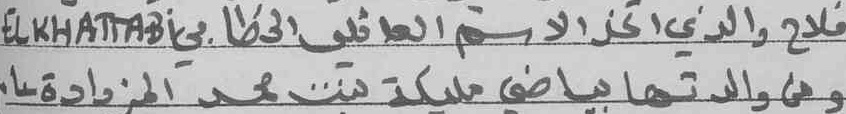 فلاح والذي اتخذ الاسم العائلي الخطابي EL KHATTABI
ومن والدتها بياضي مليكة بنت محمد المزدادة